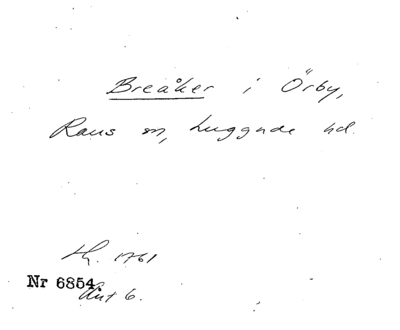 Breåker i Örby,
Raus sn, Luggude hd.
1761
Nr 6854.
Akt 6.